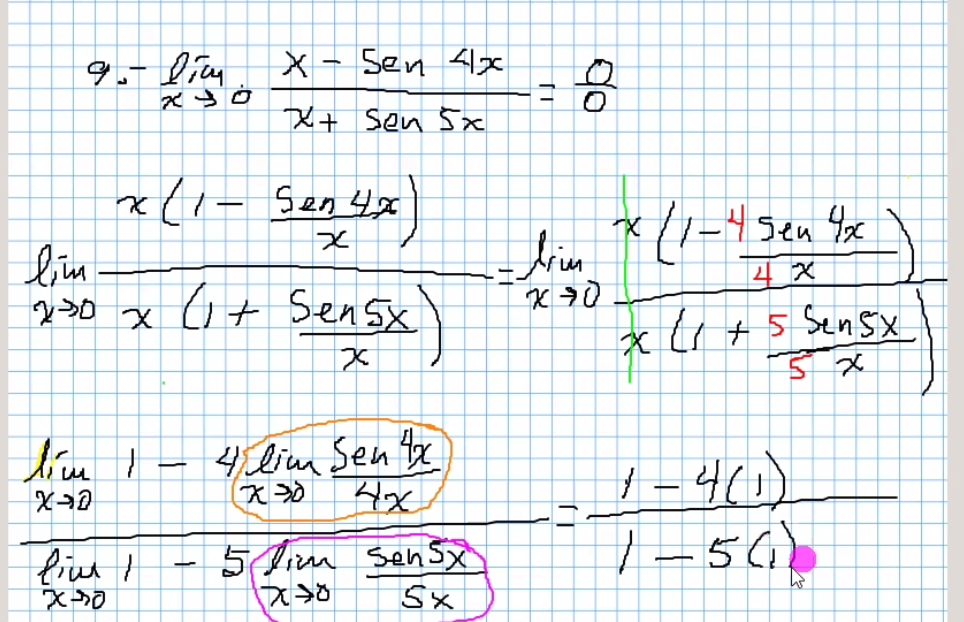 9.- lim x→0 (x - Sen 4x)/(x + Sen 5x) = 0/0
lim x→0 (x(1 - (Sen 4x)/x))/(x(1 + (Sen 5x)/x)) = lim x→0 (x(1 - (4 Sen 4x)/(4 x)))/(x(1 + (5 Sen 5x)/(5 x)))
(lim x→0 1 - 4 lim x→0 (Sen 4x)/(4x))/(lim x→0 1 - 5 lim x→0 (sen 5x)/(5x)) = (1 - 4(1))/(1 - 5(1))